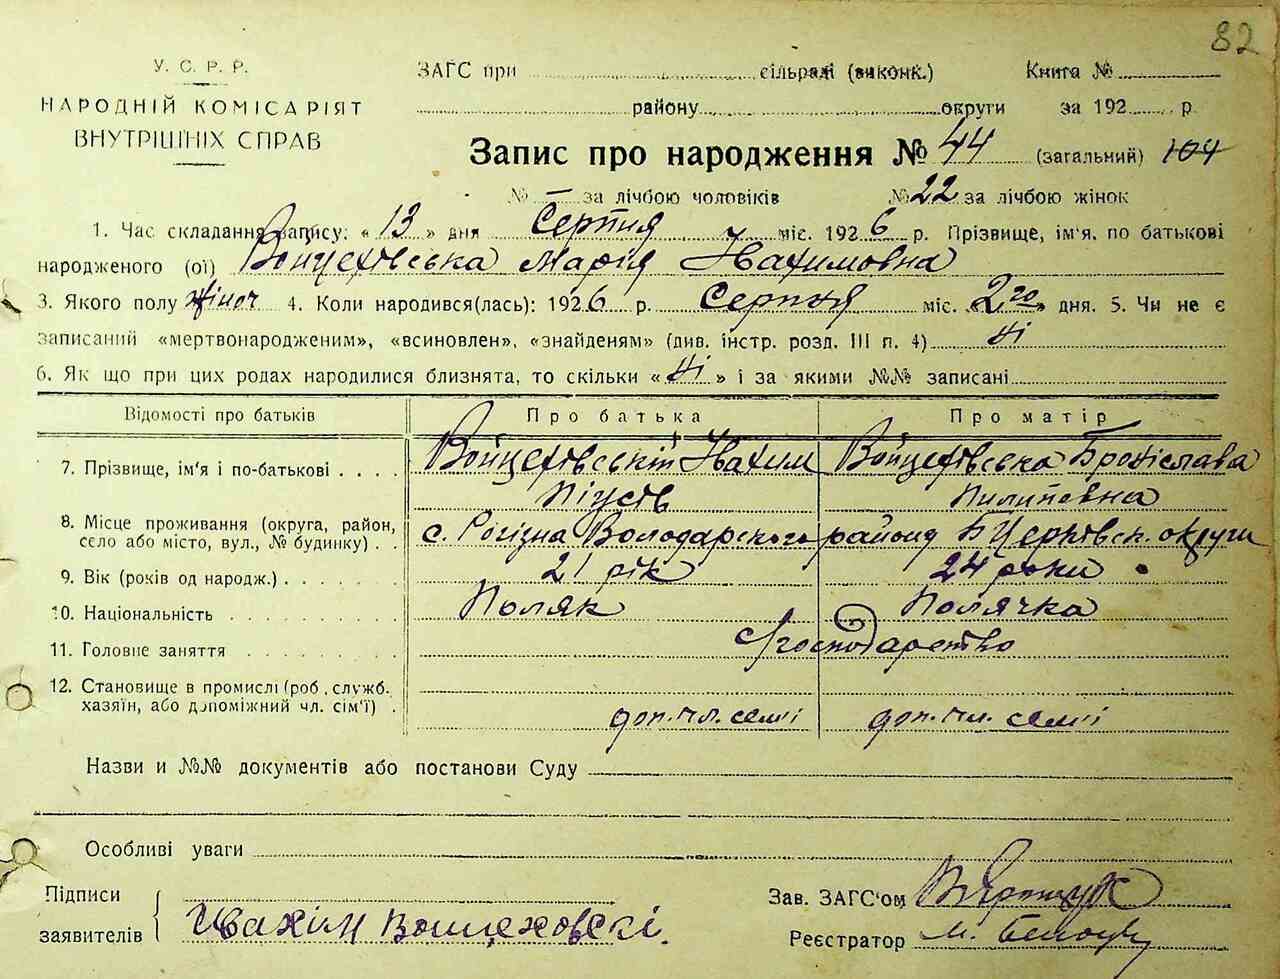 82
У. С. Р. Р.
НАРОДНІЙ КОМІСАРІЯТ
ВНУТРІШНІХ СПРАВ
ЗАГС при сільраді (виконк.) Книга №
району округи за 192 р.
Запис про народження № 44 (загальний) 104
№ — за лічбою чоловіків № 22 за лічбою жінок
1. Час складання запису: « 13 » дня Серпня міс. 1926 р. Прізвище, ім'я, по батькові
народженого (ої) Войцехівська Марія Івахимовна
3. Якого полу жіноч 4. Коли народився(лась): 1926 р. Серпня міс. «2го» дня. 5. Чи не є
записаний «мертвонародженим», «всиновлен», «знайденям» (див. інстр. розд. III п. 4) ні
6. Як що при цих родах народилися близнята, то скільки « ні » і за якими №№ записані
Відомості про батьків Про батька Про матір
7. Прізвище, ім'я і по-батькові . . . . Войцехівській Івахим Войцехівська Броніслава
Пилиповна
8. Місце проживання (округа, район,
село або місто, вул., № будинку) . . с. Рогізна Володарского району Б Церківск. округи
9. Вік (років од народж.) . . . . . . 21 рік 24 роки
10. Національність . . . . . . . . Поляк Полячка
11. Головне заняття . . . . . . . господарство
12. Становище в промислі (роб., служб.
хазяїн, або допоміжний чл. сім'ї) . доп. чл. семї доп. чл. семї
Назви и №№ документів або постанови Суду
Особливі уваги
Підписи
заявителів Івахім Воицеховскі.
Зав. ЗАГС'ом
Реєстратор М.